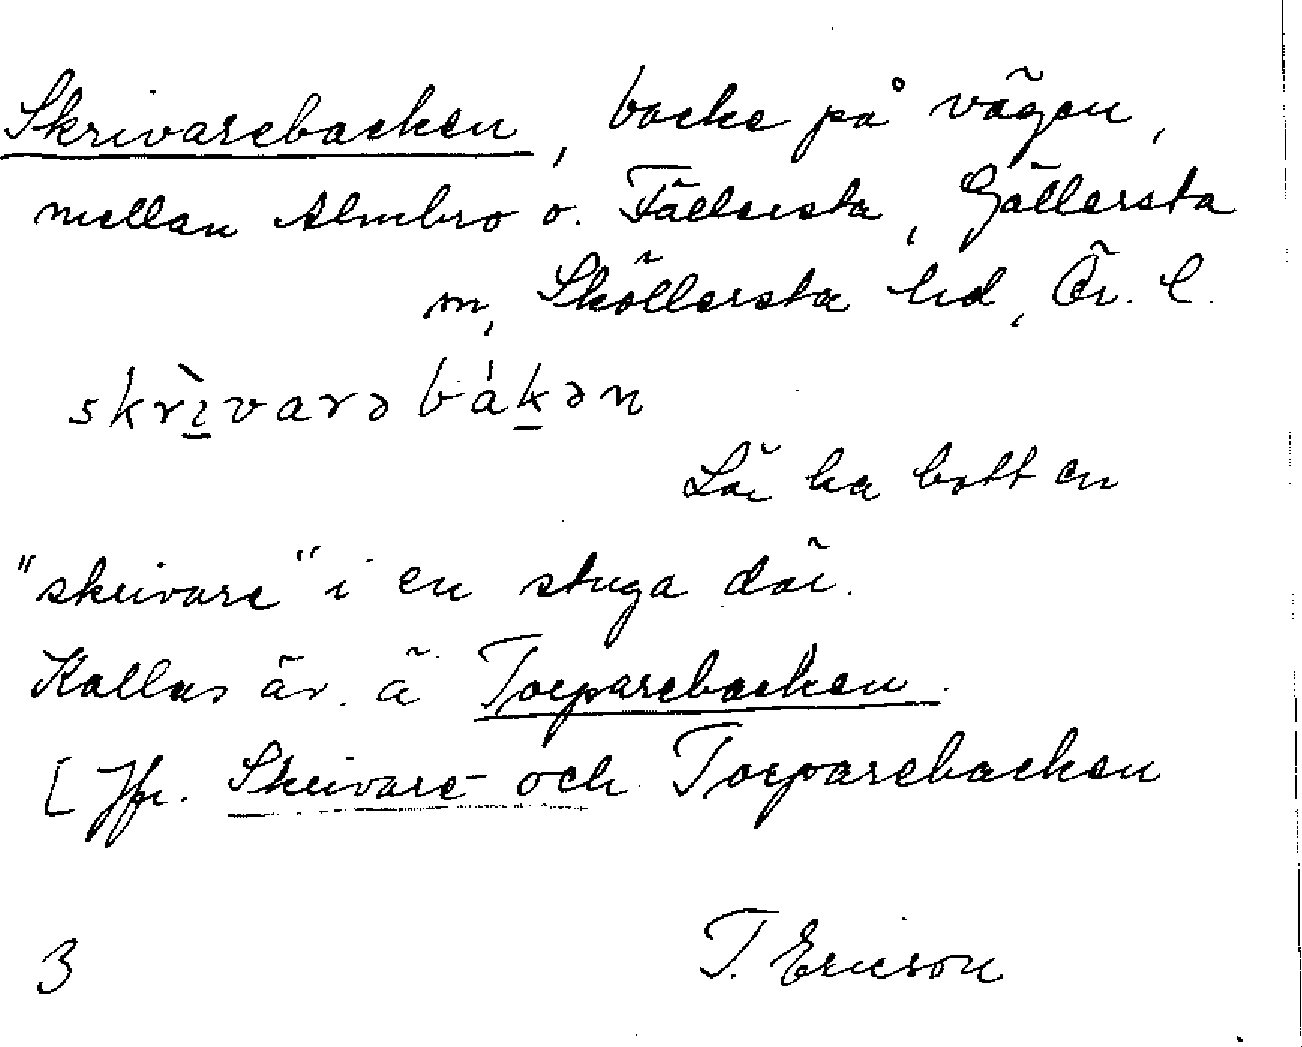 Skrivarebacken, backe på vägen,
mellan Almbro o. Fällersta, Gällersta
sn, Sköllersta hd, Ör. l.
skrìvarəbákən
Lär ha bott en
"skrivare" i en stuga där.
Kallas äv. ä Torparebacken.
[Jfr. Skrivare- och Torparebacken
3 T. Ericson